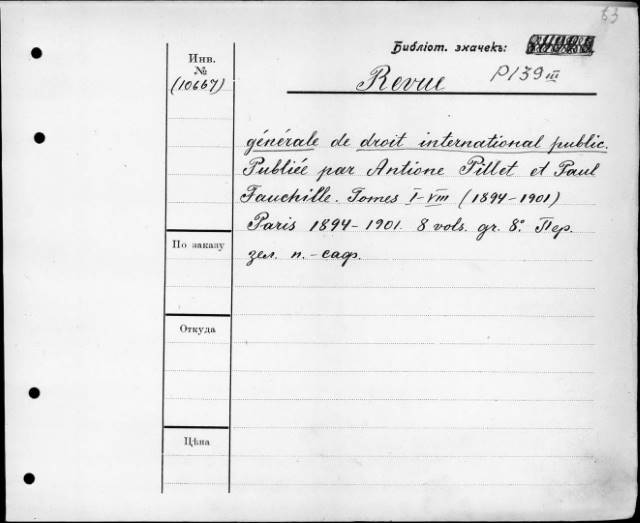 63
Библіот. значекъ:
Инв.
№
(10667)
Revue
P139 III
générale de droit international public.
Publiée par Antione Pillet et Paul
Fauchille. Tomes I-VIII (1894-1901)
Paris 1894-1901. 8 vols. gr. 8°. Пер.
зел. п.-саф.
По заказу
Откуда
Цѣна